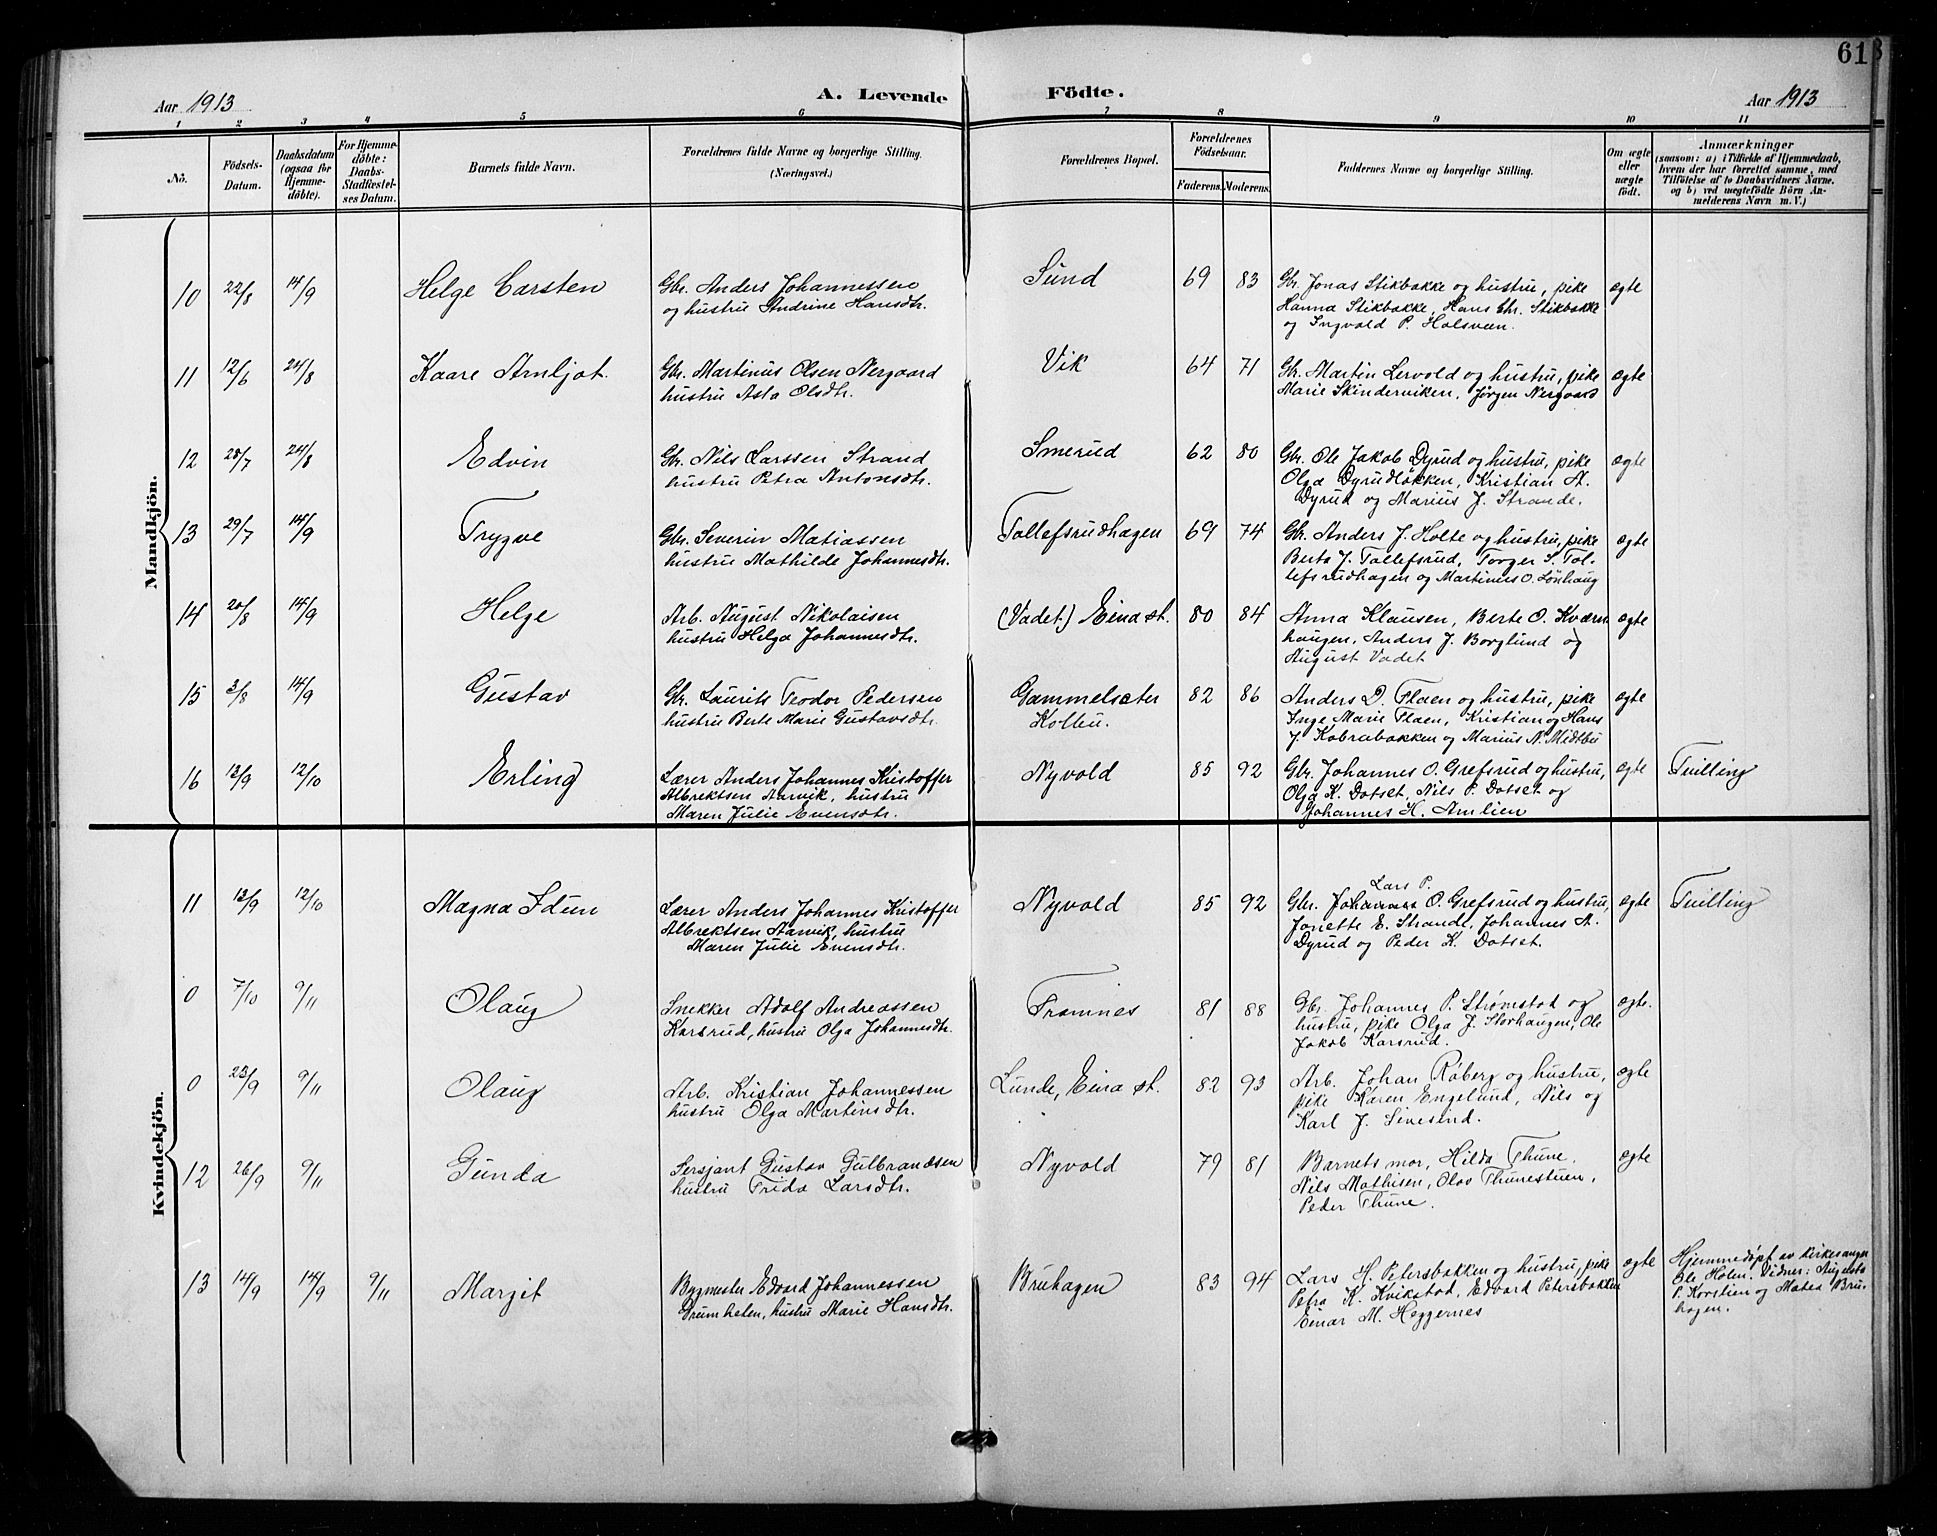 61
Aar 1913
A. Levende Födte.
Aar 1913
1 2 3 4 5 6 7 8 9 10 11
No.
Födsels-
Datum.
Daabsdatum
(ogsaa for
Hjemme-
döbte).
For Hjemme-
döbte:
Daabs-
Stadfæstel-
ses Datum.
Barnets fulde Navn.
Forældrenes fulde Navne og borgerlige Stilling.
(Næringsvei.)
Forældrenes Bopæl.
Forældrenes
Födselsaar.
Faderens. Moderens.
Faddernes Navne og borgerlige Stilling.
Om ægte
eller
uægte
födt.
Anmærkninger
(saasom: a) i Tilfælde af Hjemmedaab,
hvem der har forrettet samme, med
Tilföielse af to Daabsvidners Navne,
og b) ved uegtefödte Börn An-
melderens Navn m. V.)
Mandkjön.
10 22/8 14/9 Helge Carsten
Gbr. Anders Johannessen
og hustru Andrine Hansdtr.
Sund 69 83
Gbr. Jonas Stikbakke og hustru, pike
Hanna Stikbakke, Hans Chr. Stikbakke
og Ingvald P. Halsveen.
ægte
11 12/6 24/8 Kaare Arnljot.
Gbr. Martinus Olsen Nergaard
hustru Asta Olsdtr.
Vik 64 71
Gbr. Martin Lervold og hustru, pike
Marie Skinderviken, Jørgen Nergaard
ægte
12 28/7 24/8 Edvin
Gbr. Nils Larssen Strand
hustru Petra Antonsdtr.
Smerud 62 80
Gbr. Ole Jakob Dyrud og hustru, pike
Olga Dyrudløkken, Kristian A.
Dyrud og Marius J. Strande.
ægte
13 29/7 14/9 Trygve
Gbr. Severin Matiassen
hustru Mathilde Johannesdtr.
Tollefsrudhagen 69 74
Gbr. Anders J. Holte og hustru, pike
Berta J. Tollefsrud, Torger S. Tol-
lefsrudhagen og Martinus O. Lønhaug
ægte
14 20/8 14/9 Helge
Arb. August Nikolaisen
hustru Helga Johannesdtr.
(Vadet.) Eina st. 80 84
Anna Klausen, Berte O. Kværn
haugen, Anders J. Borglund og
August Vadet
ægte
15 3/8 14/9 Gustav
Gbr. Laurits Teodor Pedersen
hustru Berte Marie Gustavsdtr.
Gammelsæter
Kolbu.
82 86
Anders D. Flaen og hustru, pike
Inge Marie Flaen, Kristian og Hans
J. Kobrabakken og Marius N. Midtbu
ægte
16 13/9 12/10 Erling
Lærer Anders Johannes Kristoffer
Albrektsen Aarvik, hustru
Maren Julie Evensdtr.
Nyvold 85 92
Gbr. Johannes O. Grefsrud og hustru,
Olga K. Dotset, Nils P. Dotset og
Johannes H. Amlien
ægte Tvilling
Kvindekjön.
11 13/9 12/10 Magna Idun
Lærer Anders Johannes Kristoffer
Albrektsen Aarvik, hustru
Maren Julie Evensdtr.
Nyvold 85 92
Lars P.
Gbr. Johannes O. Grefsrud og hustru,
Jonette E. Strande, Johannes A.
Dyrud og Peder K. Dotset.
ægte Tvilling
0 7/10 9/11 Olaug
Snekker Adolf Andreassen
Karsrud, hustru Olga Johannesdtr.
Framnes 81 88
Gbr. Johannes P. Strømstad og
hustru, pike Olga J. Storhaugen, Ole
Jakob Karsrud.
ægte.
0 23/9 9/11 Olaug
Arb. Kristian Johannessen
hustru Olga Martinsdtr.
Lunde, Eina st. 82 93
Arb. Johan Røberg og hustru,
pike Karen Engelund, Nils og
Karl J. Sivesind.
ægte
12 26/9 9/11 Gunda
Sersjant Gustav Gulbrandsen
hustru Frida Larsdtr.
Nyvold 79 81
Barnets mor, Hilda Thune,
Nils Mathisen, Olav Thunestuen,
Peder Thune.
ægte
13 14/9 14/9 9/11 Margit
Bygmester Edvard Johannessen
hustru Marie Hansdtr.
Bruhagen 83 94
Lars H. Petersbakken og hustru, pike
Petra K. Kvikstad, Edvard Petersbakken
Einar M. Heggernes
ægte
Hjemmedøpt av kirkesanger
Ole Holen. Vidner:
P. Korstien og Matea Bru-
hagen.